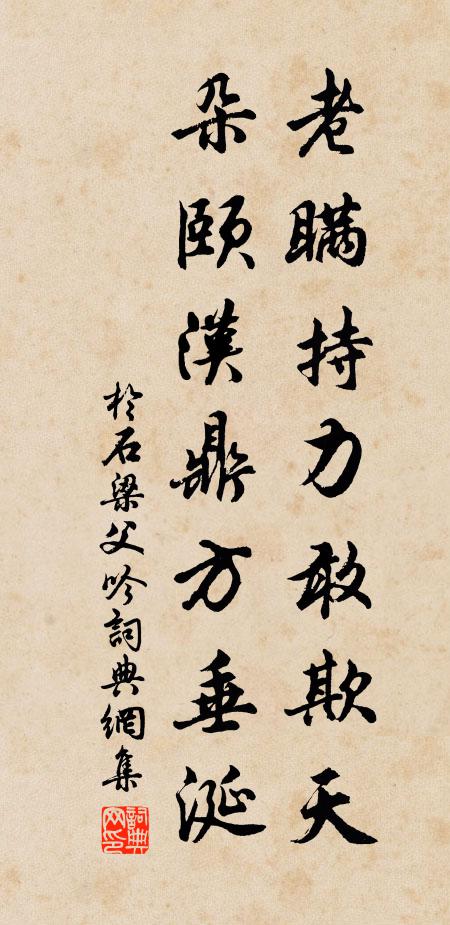 老瞞持力敢欺天
朵頤漢鼎方垂涎
於石梁父吟詞典網集
詞典網印